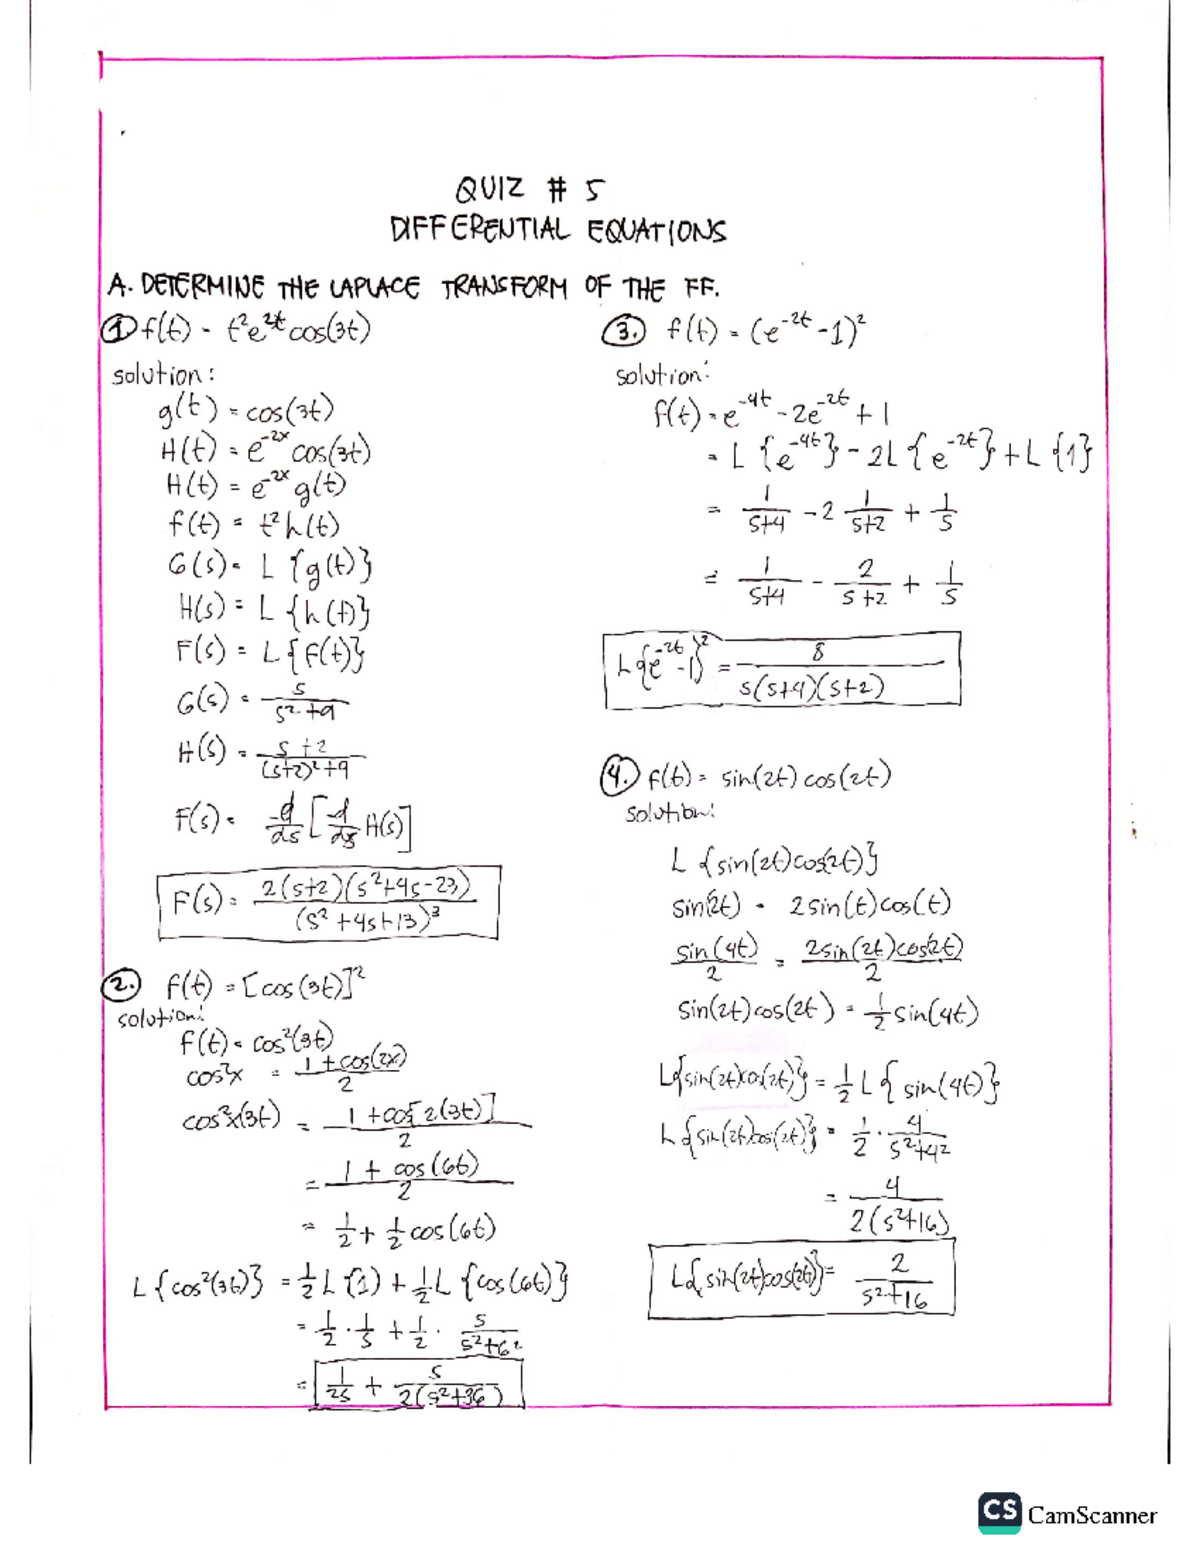 QUIZ # 5
DIFFERENTIAL EQUATIONS
A. DETERMINE THE LAPLACE TRANSFORM OF THE FF.
① f(t) - t²e²ᵗcos(3t)
solution:
g(t) = cos(3t)
H(t) = e⁻²ˣ cos(3t)
H(t) = e⁻²ˣ g(t)
f(t) = t²h(t)
G(s) = L {g(t)}
H(s) = L {h(t)}
F(s) = L{f(t)}
G(s) = s/(s²+9)
H(s) = (s+2)/((s+2)²+9)
F(s) = -d/ds [-d/ds H(s)]
F(s) = 2(s+2)(s²+4s-23)/(s²+4s+13)³
2. f(t) = [cos(3t)]²
solution:
f(t) = cos²(3t)
cos²x = (1+cos(2x))/2
cos²x(3t) = (1+cos[2(3t)])/2
= (1 + cos(6t))/2
= 1/2 + 1/2 cos(6t)
L{cos²(3t)} = 1/2 L{1} + 1/2 L{cos(6t)}
= 1/2 · 1/s + 1/2 · s/(s²+6²)
= 1/2s + s/(2(s²+36))
3. f(t) = (e⁻²ᵗ -1)²
solution:
f(t) = e⁻⁴ᵗ - 2e⁻²ᵗ + 1
= L{e⁻⁴ᵗ} - 2L{e⁻²ᵗ} + L{1}
= 1/(s+4) - 2 1/(s+2) + 1/s
= 1/(s+4) - 2/(s+2) + 1/s
L{e⁻²ᵗ -1)² = 8/(s(s+4)(s+2))
4. f(t) = sin(2t) cos(2t)
solution:
L {sin(2t)cos(2t)}
sin(2t) = 2sin(t)cos(t)
sin(4t)/2 = 2sin(2t)cos(2t)/2
sin(2t)cos(2t) = 1/2 sin(4t)
L{sin(2t)cos(2t)} = 1/2 L{sin(4t)}
L{sin(2t)cos(2t)} = 1/2 · 4/(s²+4²)
= 4/(2(s²+16))
L{sin(2t)cos(2t)} = 2/(s²+16)
CS CamScanner